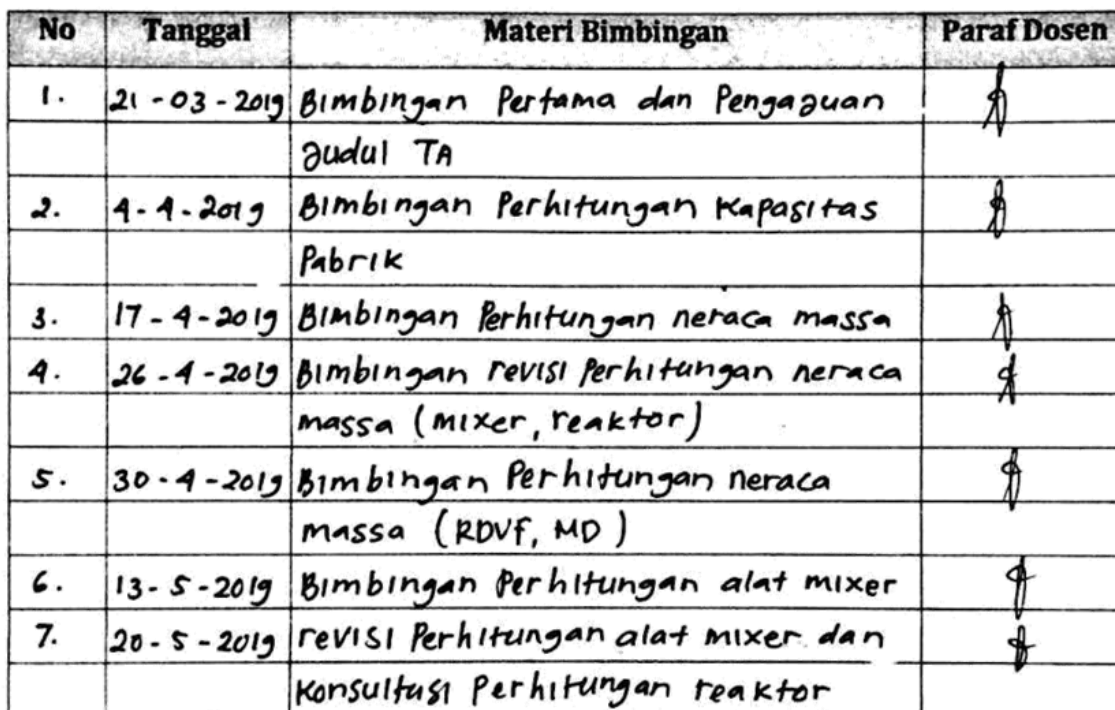 No Tanggal Materi Bimbingan Paraf Dosen
1. 21-03-2019 Bimbingan Pertama dan Pengajuan
Judul TA
2. 4-4-2019 Bimbingan Perhitungan Kapasitas
Pabrik
3. 17-4-2019 Bimbingan Perhitungan neraca massa
4. 26-4-2019 Bimbingan revisi Perhitungan neraca
massa (mixer, reaktor)
5. 30-4-2019 Bimbingan Perhitungan neraca
massa (RDVF, MD)
6. 13-5-2019 Bimbingan Perhitungan alat mixer
7. 20-5-2019 revisi Perhitungan alat mixer dan
Konsultasi Perhitungan reaktor